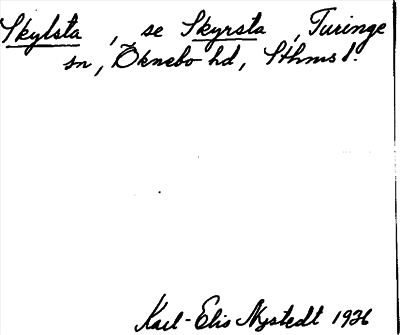 Skylsta, se Skyrsta, Turinge
sn, Öknebo hd, Sthms l.
Karl-Elis Nystedt 1926